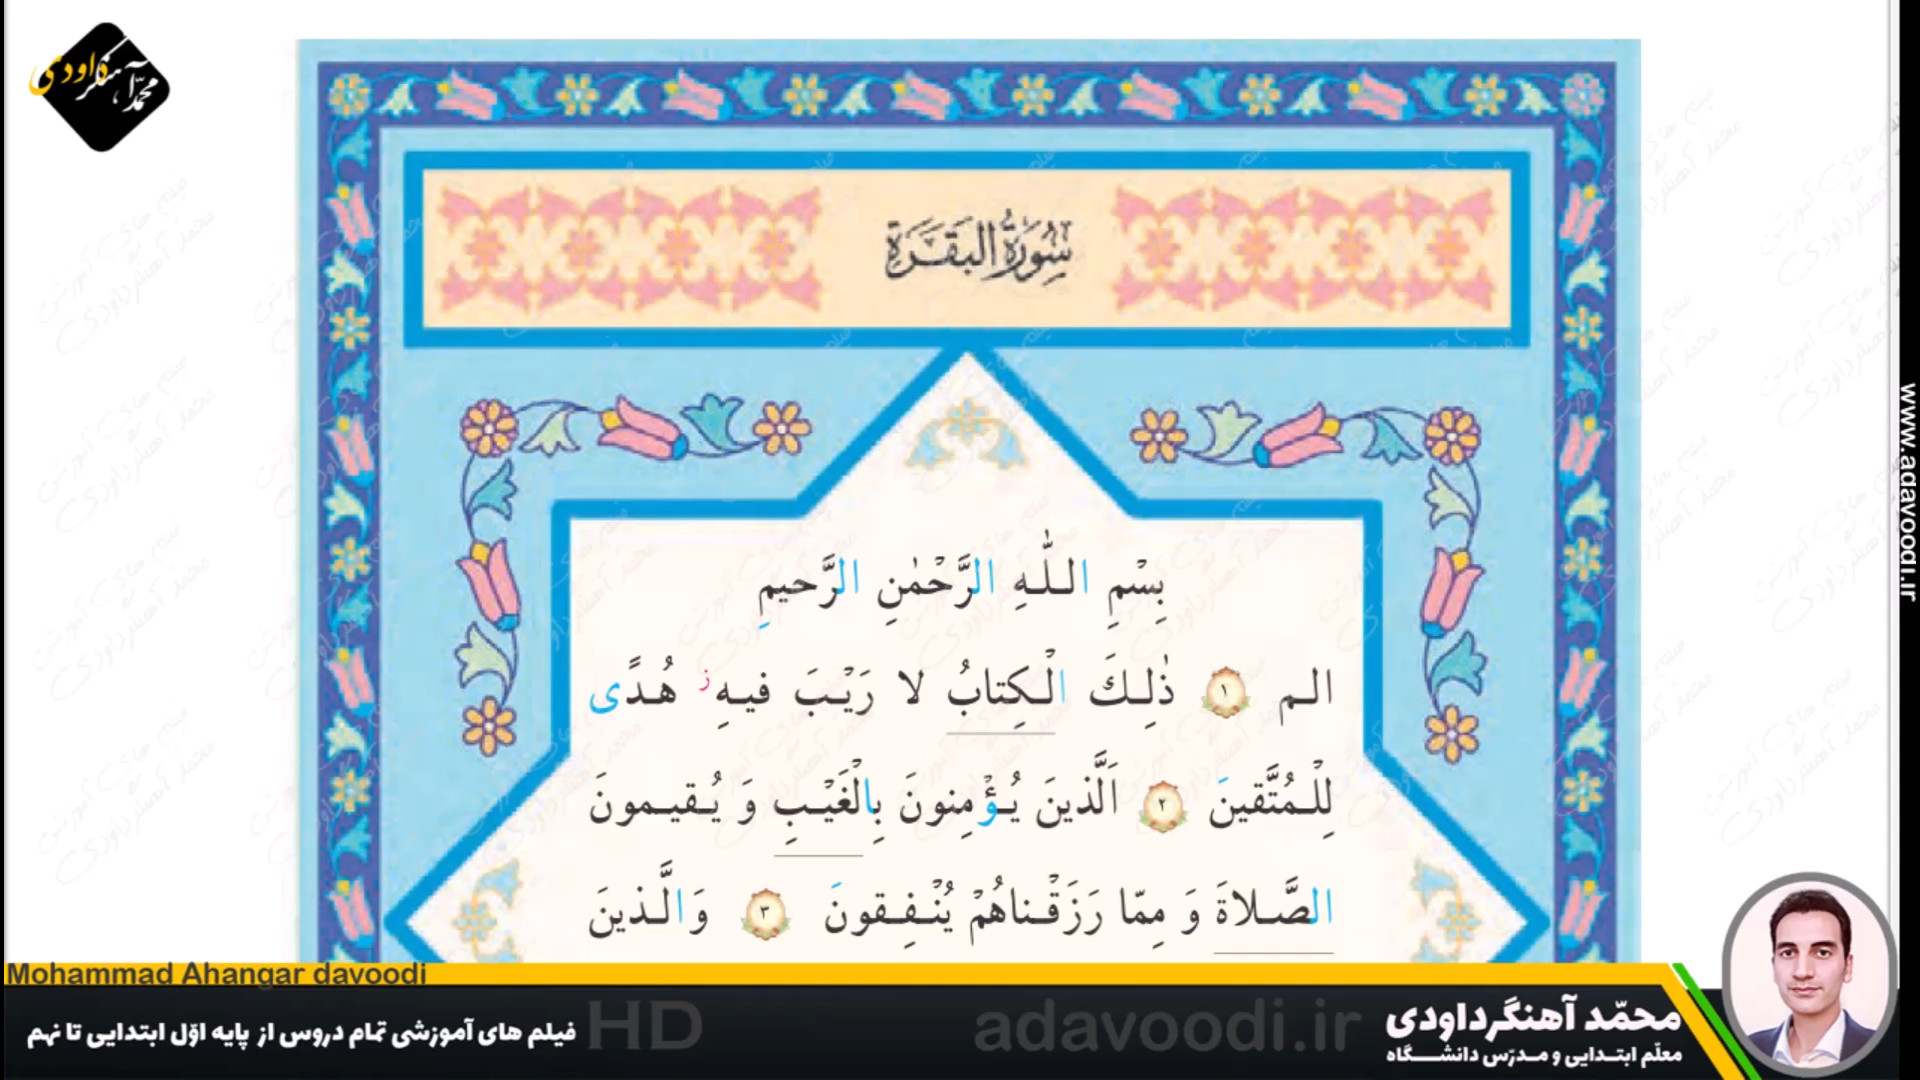 محمّد آهنگرداودی
سُورَةُ البَقَرَة
بِسْمِ اللّٰهِ الرَّحْمٰنِ الرَّحیمِ
الم ١ ذٰلِكَ الْكِتابُ لا رَیْبَ فیهِ ز هُدًی
لِلْمُتَّقینَ ٢ اَلَّذینَ یُؤْمِنونَ بِالْغَیْبِ وَ یُقیمونَ
الصَّلاةَ وَ مِمّا رَزَقْناهُمْ یُنْفِقونَ ٣ وَالَّذینَ
www.adavoodi.ir
Mohammad Ahangar davoodi
فیلم های آموزشی تمام دروس از پایه اوّل ابتدایی تا نهم
HD
adavoodi.ir
محمّد آهنگرداودی
معلّم ابتدایی و مدرّس دانشگاه